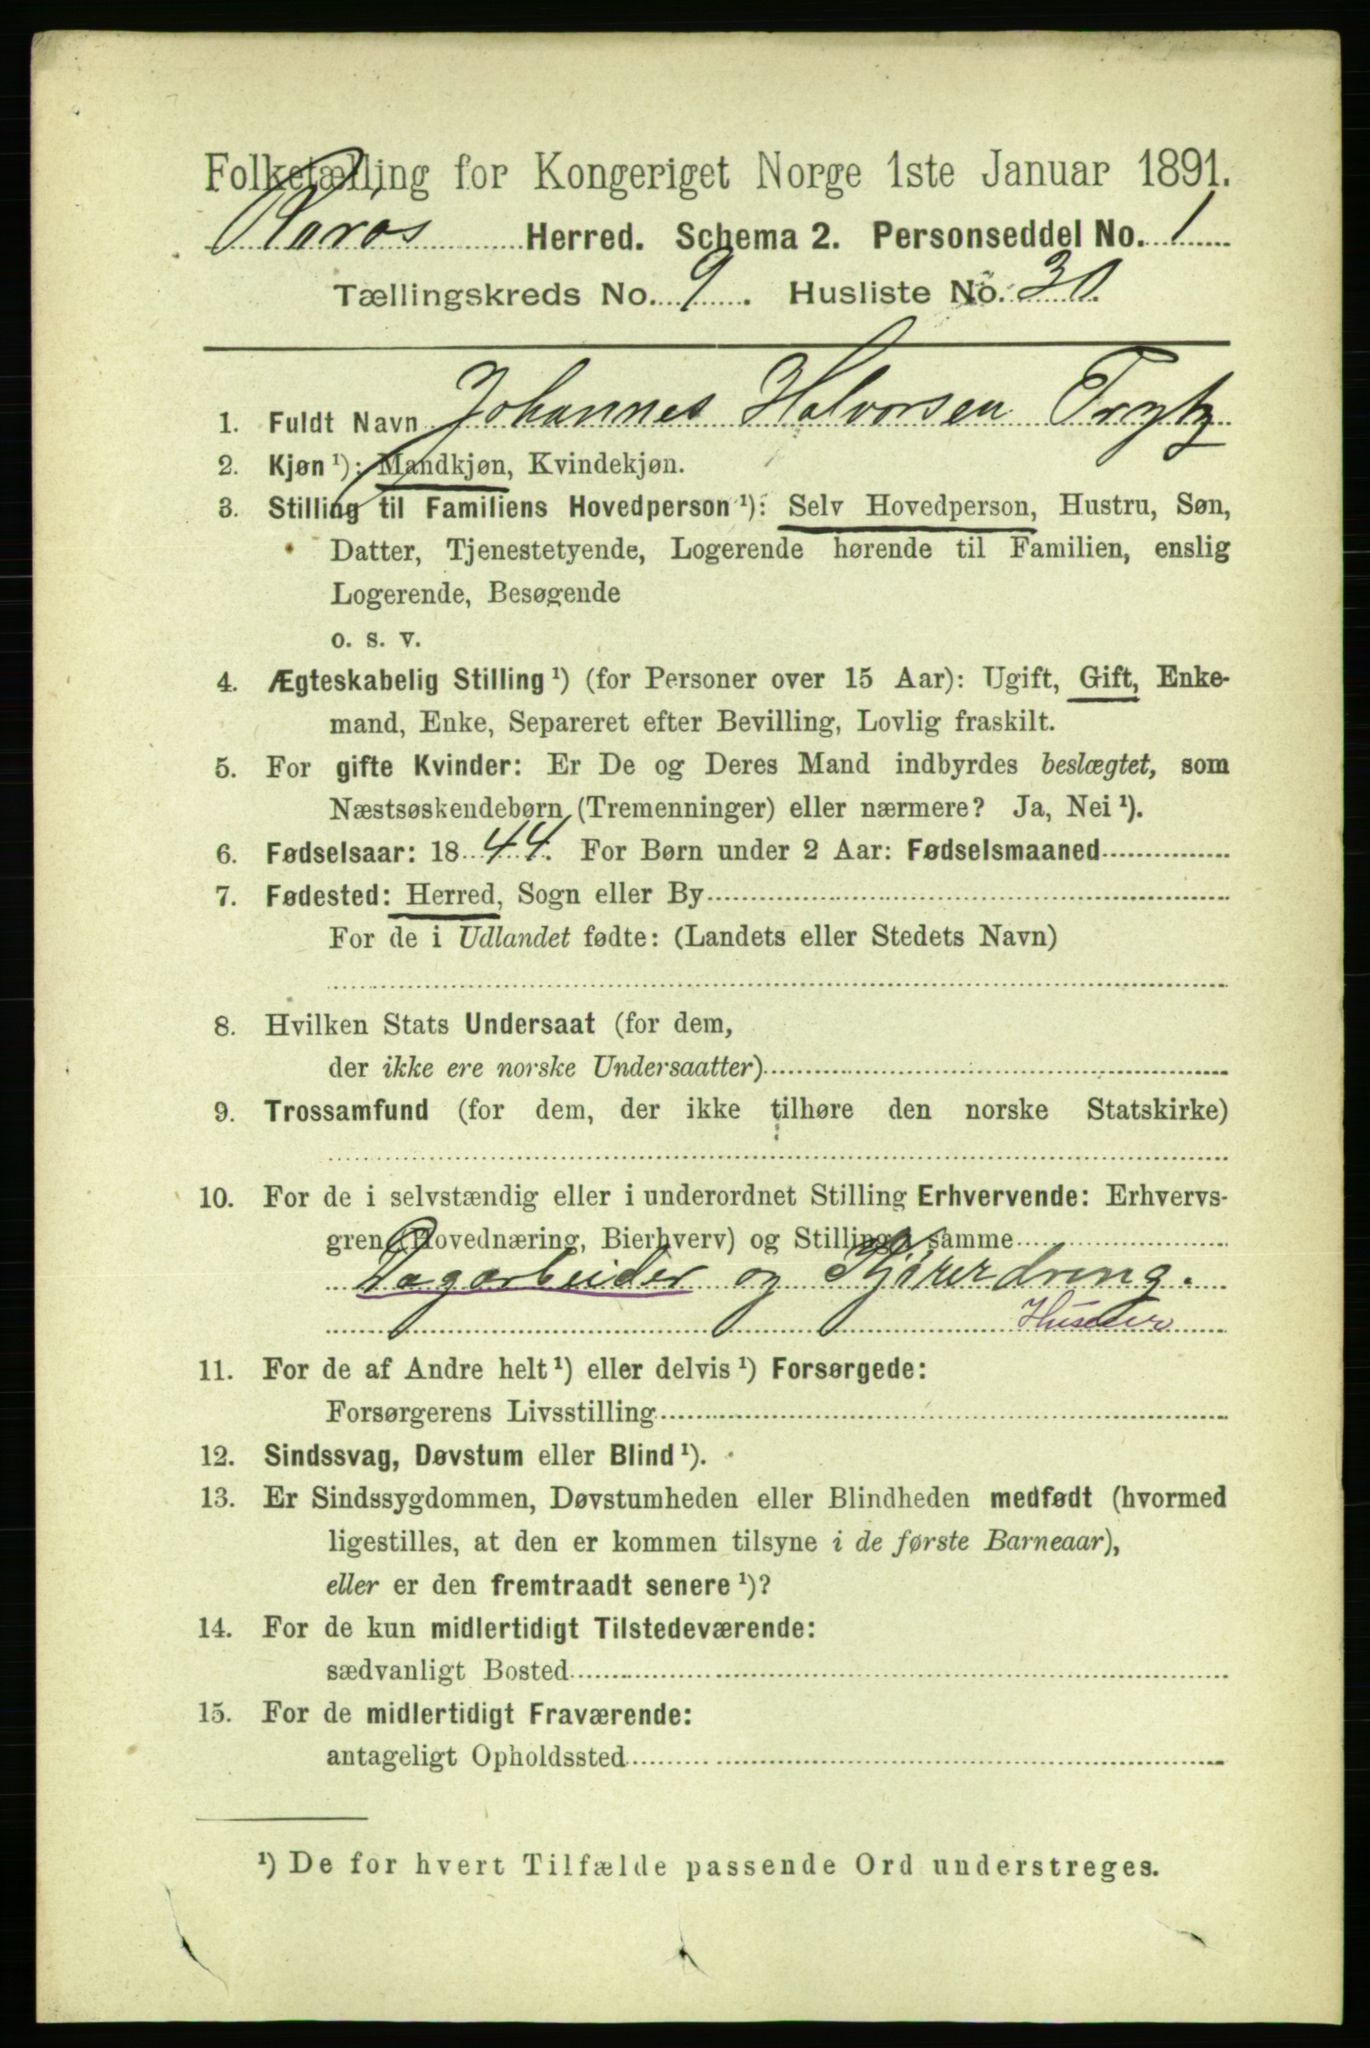 Folketælling for Kongeriget Norge 1ste Januar 1891.
Røros Herred. Schema 2. Personseddel No. 1
Tællingskreds No. 9. Husliste No. 30.
1. Fuldt Navn Johannes Halvorsen Trytz
2. Kjøn ¹): Mandkjøn, Kvindekjøn.
3. Stilling til Familiens Hovedperson ¹): Selv Hovedperson, Hustru, Søn,
Datter, Tjenestetyende, Logerende hørende til Familien, enslig
Logerende, Besøgende
o. s. v.
4. Ægteskabelig Stilling ¹) (for Personer over 15 Aar): Ugift, Gift, Enke-
mand, Enke, Separeret efter Bevilling, Lovlig fraskilt.
5. For gifte Kvinder: Er De og Deres Mand indbyrdes beslægtet, som
Næstsøskendebørn (Tremenninger) eller nærmere? Ja, Nei ¹).
6. Fødselsaar: 1844. For Børn under 2 Aar: Fødselsmaaned
7. Fødested: Herred, Sogn eller By
For de i Udlandet fødte: (Landets eller Stedets Navn)
8. Hvilken Stats Undersaat (for dem,
der ikke ere norske Undersaatter)
9. Trossamfund (for dem, der ikke tilhøre den norske Statskirke)
10. For de i selvstændig eller i underordnet Stilling Erhvervende: Erhvervs-
gren (Hovednæring, Bierhverv) og Stilling i samme
Dagarbeider og Kjørerdreng.
11. For de af Andre helt ¹) eller delvis ¹) Forsørgede:
Forsørgerens Livsstilling
12. Sindssvag, Døvstum eller Blind ¹).
13. Er Sindssygdommen, Døvstumheden eller Blindheden medfødt (hvormed
ligestilles, at den er kommen tilsyne i de første Barneaar),
eller er den fremtraadt senere ¹)?
14. For de kun midlertidigt Tilstedeværende:
sædvanligt Bosted
15. For de midlertidigt Fraværende:
antageligt Opholdssted
¹) De for hvert Tilfælde passende Ord understreges.